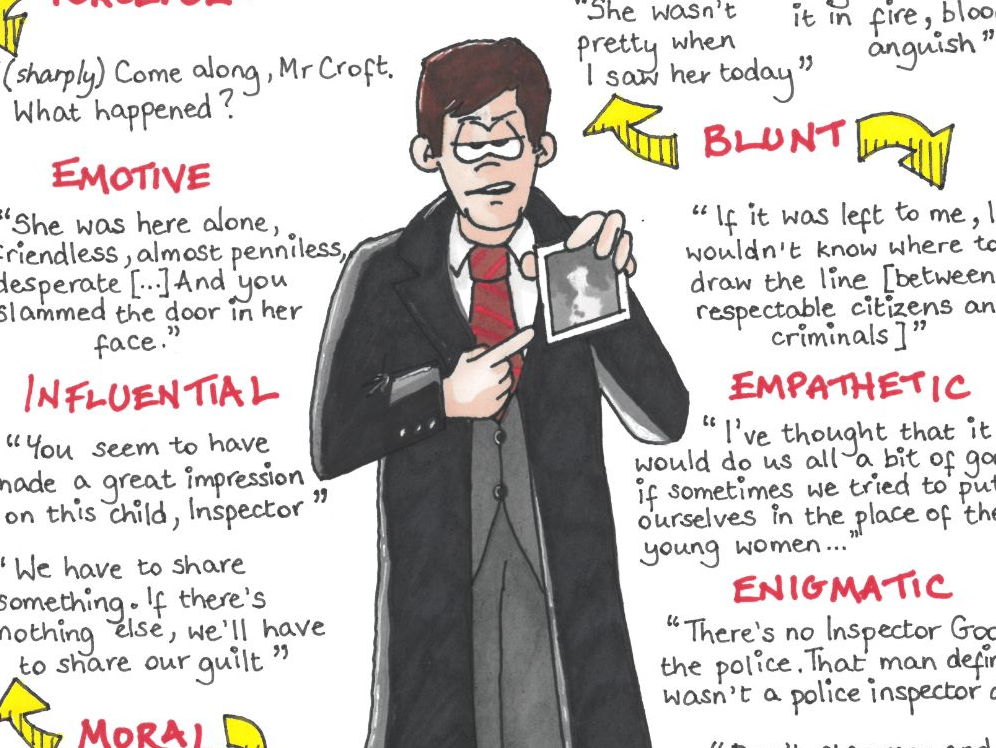 (sharply) Come along, Mr Croft.
What happened?
EMOTIVE
"She was here alone,
friendless, almost penniless,
desperate [...] And you
slammed the door in her
face."
INFLUENTIAL
"You seem to have
made a great impression
on this child, Inspector"
"We have to share
something. If there's
nothing else, we'll have
to share our guilt"
MORAL
"She wasn't
pretty when
I saw her today"
it in fire,
anguish"
BLUNT
"If it was left to me, I
wouldn't know where to
draw the line [between
respectable citizens
criminals]"
EMPATHETIC
"I've thought that it
would do us all a bit of
if sometimes we tried to put
ourselves in the place of
young women..."
ENIGMATIC
"There's no Inspector
the police. That man
wasn't a police inspector